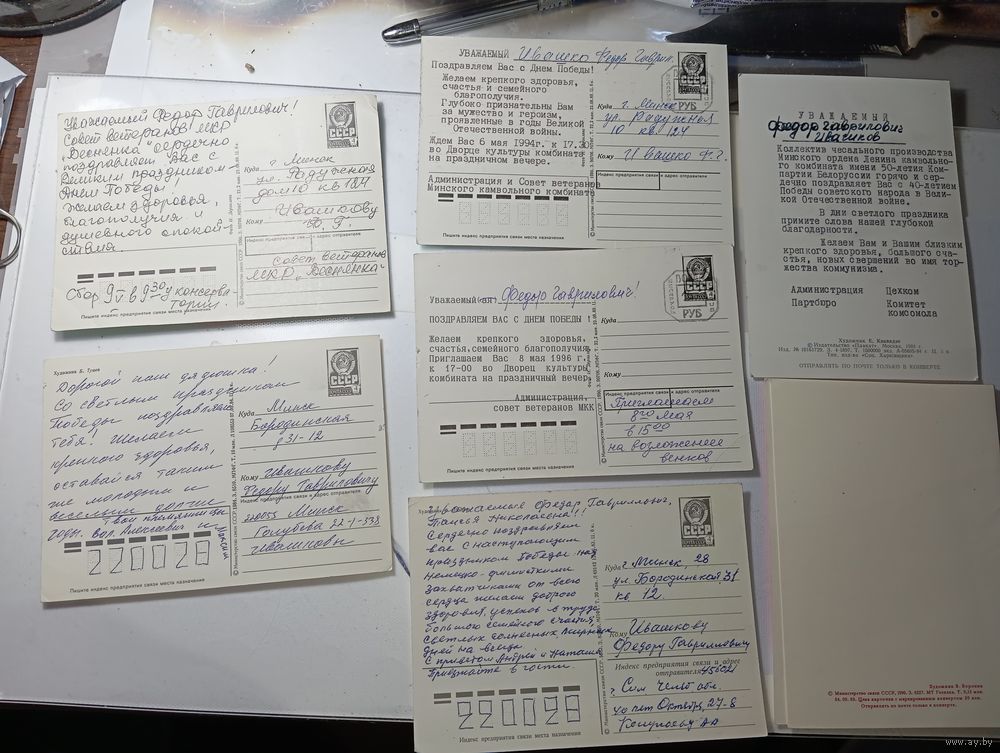 Уважаемый Федор Гаврилович!
Совет ветеранов МКР
"Веснянка" сердечно
поздравляет Вас с
Великим праздником -
Днем Победы,
желаем здоровья,
благополучия и
душевного спокой-
ствия.
Сбор 9/V в 9 30 у консерва-
тории.
Пишите индекс предприятия связи места назначения
СССР
Куда г. Минск
ул. Радужная
дом 10 кв 127
Ивашкову
Кому Ф. Г.
Индекс предприятия связи и адрес отправителя
совет ветеранов
МКР "Веснянка"
Художник Б. Гуцев
Дорогой наш дядюшка!
Со светлым праздником
Победы поздравляем
тебя! Желаем
крепкого здоровья,
оставайся таким
же молодым и
веселым долгие
годы. Твои племянники
Вал. Алексеевич и
220028
Пишите индекс предприятия связи места назначения
СССР
Куда Минск
Бородинская
31-12
Кому Ивашкову
Федору Гавриловичу
Индекс предприятия связи и адрес отправителя
220055 Минск
Голубева 22-1-338
Ивашковы
УВАЖАЕМЫЙ Ивашко Федор Гаврил
Поздравляем Вас с Днем Победы!
Желаем крепкого здоровья,
счастья и семейного
благополучия.
Глубоко признательны Вам
за мужество и героизм,
проявленные в годы Великой
Отечественной войны.
Ждем Вас 6 мая 1994г. к 17.30
во Дворце культуры комбината
на праздничном вечере.
Администрация и Совет ветеранов
Минского камвольного комбината
Пишите индекс предприятия связи места назначения
РУБ
Куда г. Минск
ул. Радужная
10 кв. 127
Кому Ивашко Ф.Г.
Индекс предприятия связи и адрес отправителя
Уважаемый(ая) Федор Гаврилович!
ПОЗДРАВЛЯЕМ ВАС С ДНЕМ ПОБЕДЫ!
Желаем крепкого здоровья,
счастья, семейного благополучия.
Приглашаем Вас 8 мая 1996 г.
к 17-00 во Дворец культуры
комбината на праздничный вечер.
Администрация,
совет ветеранов МКК
Пишите индекс предприятия связи места назначения
РУБ
Куда
Кому
Индекс предприятия связи и адрес отправителя
Приглашаем
8го мая
в 15 00
на возложение
венков!
Уважаемые Федор Гаврилович,
Николаевна!!
Сердечно поздравляем
вас с наступающим
праздником Победы над
Немецко-фашисткими
захватчиками от всего
сердца желаем доброго
здоровья, успехов в труде
большого семейного счастья,
светлых солнечных мирных
дней на всегда
С приветом Андрей и Наташа
Приезжайте в гости
220028
Индекс предприятия связи места назначения
СССР
Куда г. Минск 28
ул Бородинской, 31
кв 12.
Кому Ивашкову
Федору Гавриловичу
Индекс предприятия связи и адрес
отправителя 456021
г Сим Челяб обл.
ул Октября, 27-8
УВАЖАЕМЫЙ
Федор Гаврилович
Ивашков
Коллектив чесального производства
Минского ордена Ленина камвольно-
го комбината имени 50-летия Ком-
партии Белоруссии горячо и сер-
дечно поздравляет Вас с 40-летием
Победы советского народа в Вели-
кой Отечественной войне.
В дни светлого праздника
примите слова нашей глубокой
благодарности.
Желаем Вам и Вашим близким
крепкого здоровья, большого сча-
стья, новых свершений во имя тор-
жества коммунизма.
Администрация Цехком
Партбюро Комитет
комсомола
© Издательство «Плакат». Москва,
ОТПРАВЛЯТЬ ПО ПОЧТЕ ТОЛЬКО В КОНВЕРТЕ
Художник В. Воронин
Отправлять по почте только в конверте.
www.ay.by